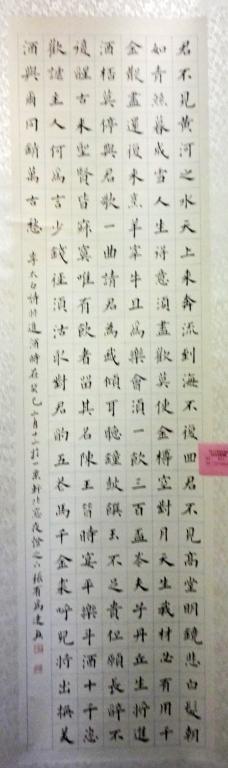 君不見黃河之水天上來奔流到海不復回君不見高堂明鏡悲白髮朝
如青絲暮成雪人生得意須盡歡莫使金樽空對月天生我材必有用千
金散盡還復來烹羊宰牛且為樂會須一飲三百盃岑夫子丹丘生將進
酒桮莫停與君歌一曲請君為我傾耳聽鐘鼓饌玉不足貴但願長醉不
復醒古來聖賢皆寂寞唯有飲者留其名陳王昔時宴平樂斗酒十千恣
歡謔主人何為言少錢徑須沽取對君酌五花馬千金裘呼兒將出換美
酒與爾同銷萬古愁 李太白詩將進酒時在癸巳六月十二於一葉軒北窗夜燈之下張有為